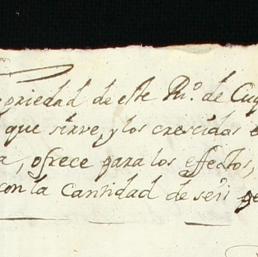 opriedad de este Rno. de Cuq
que sirve, y los crescidos e
a, ofrece para los effectos,
con la Cantidad de seis